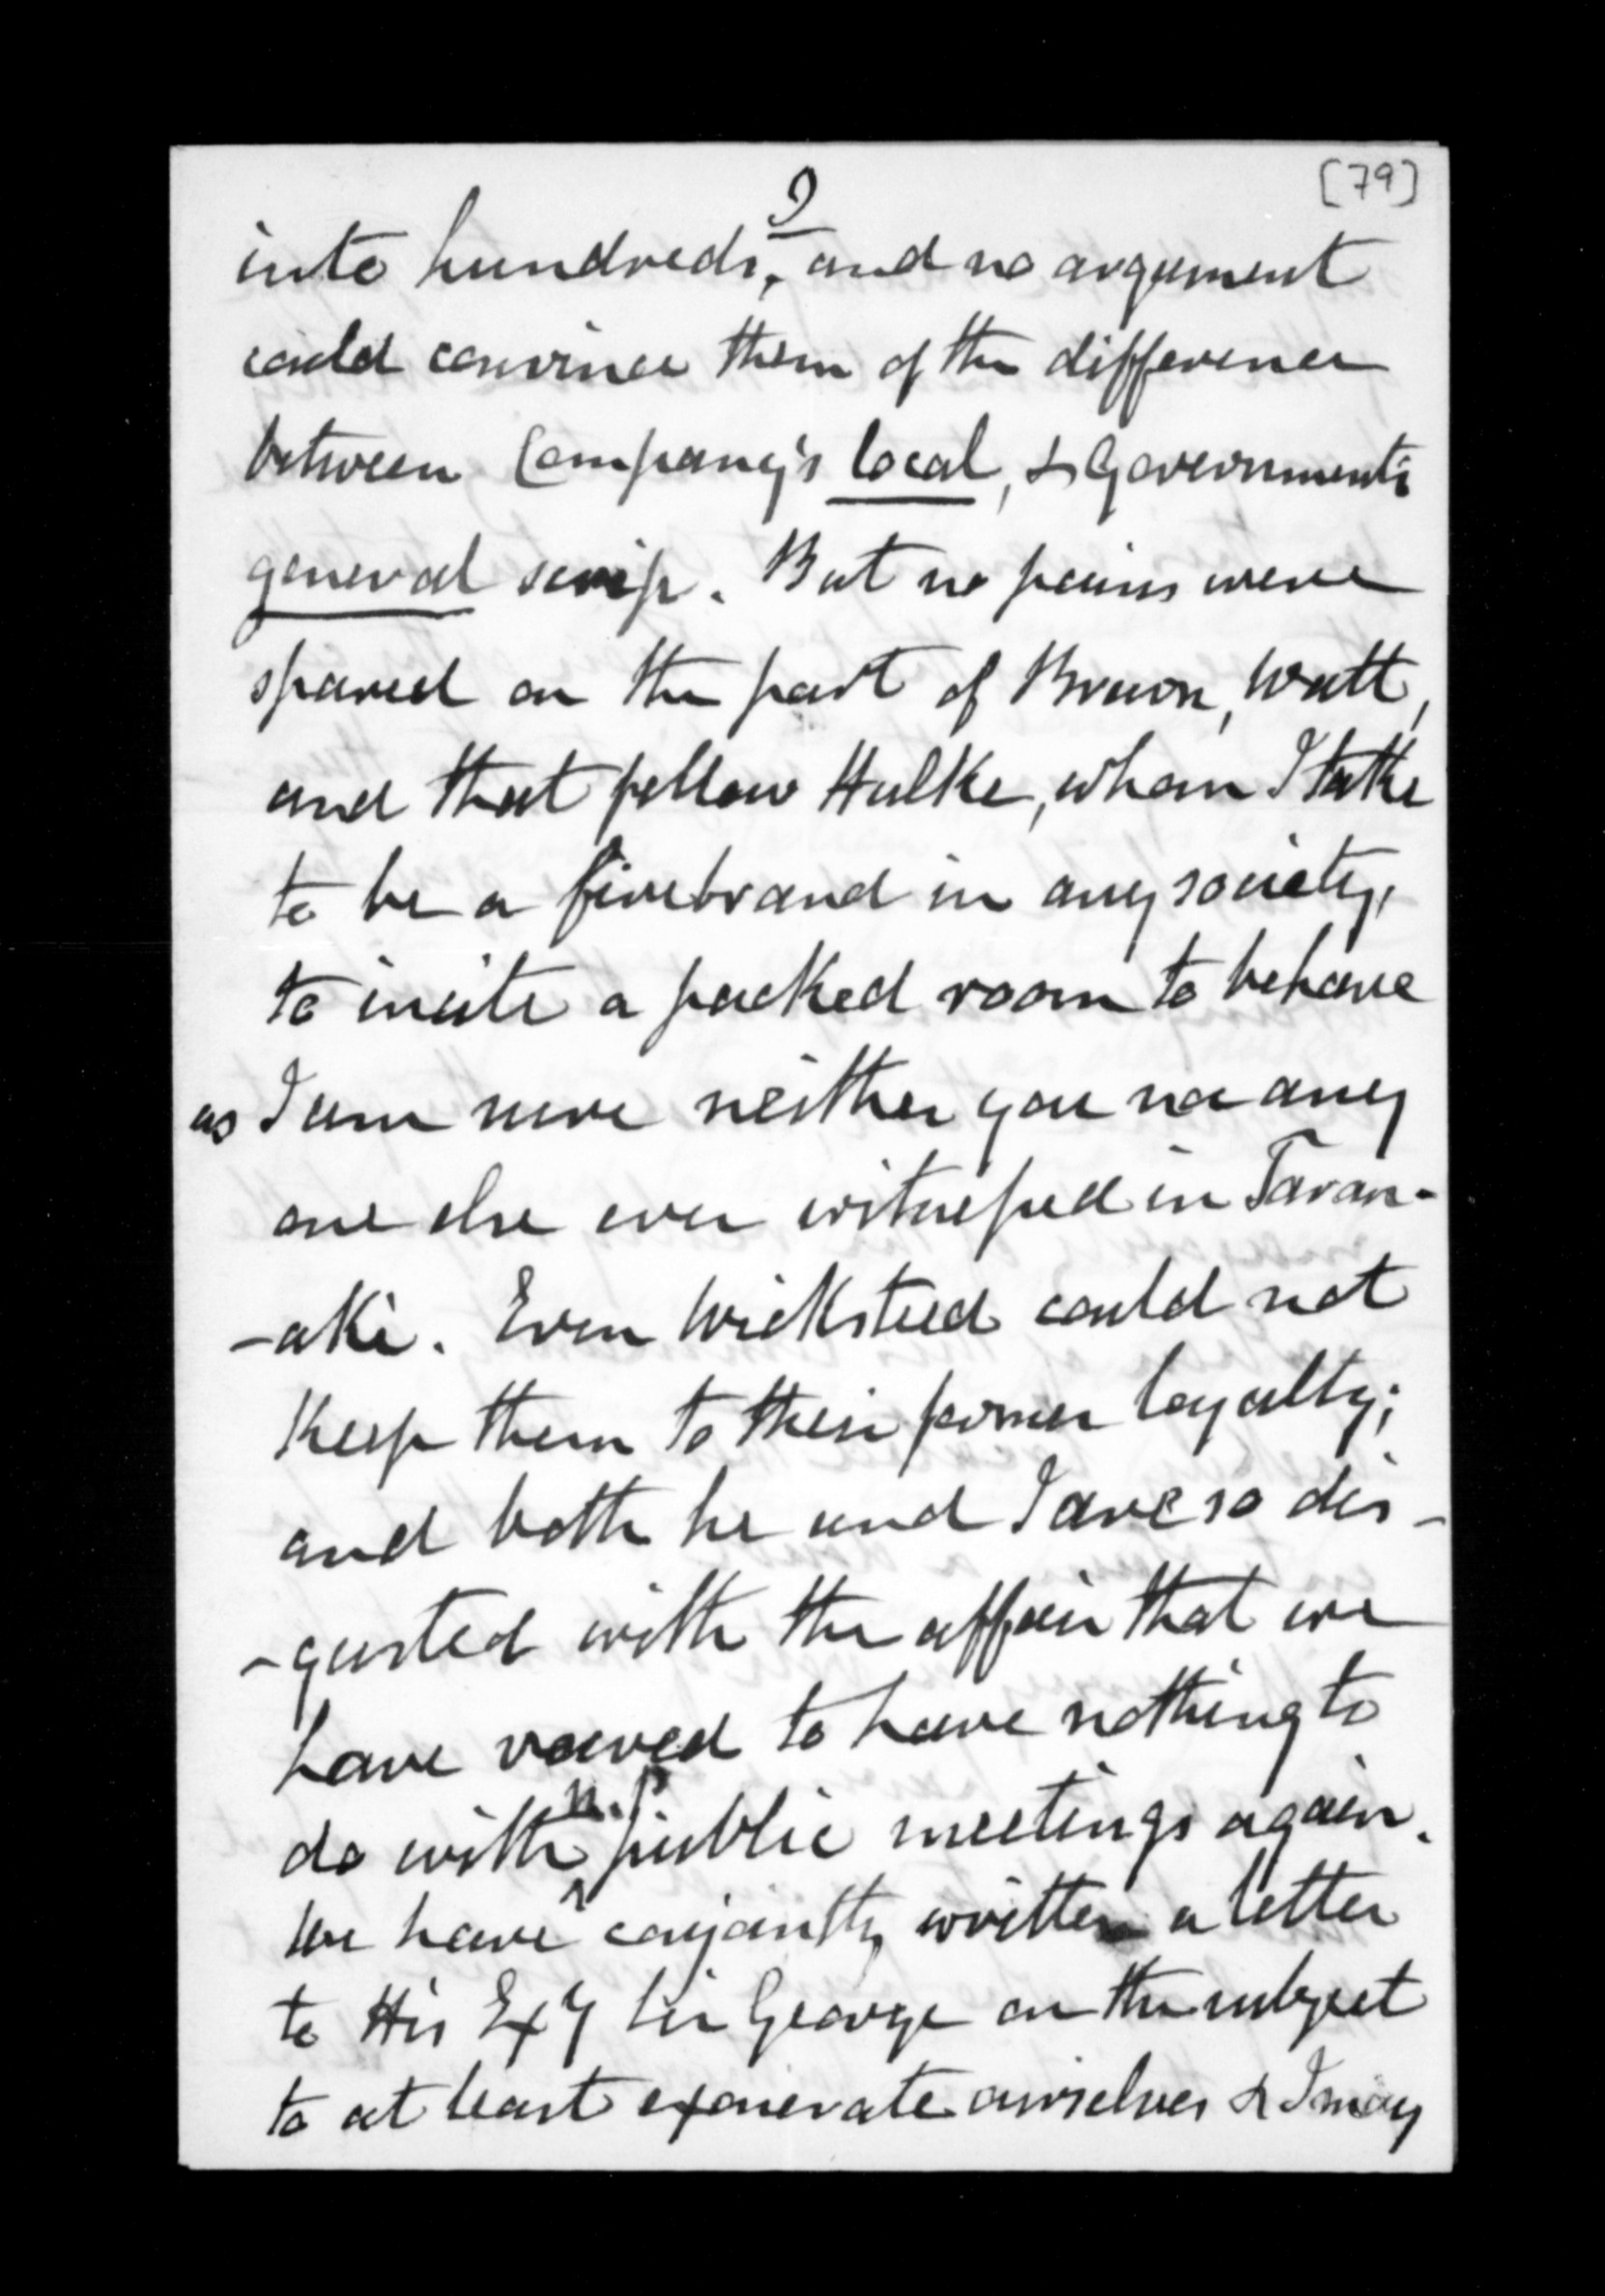 9
[79]
into hundreds, and no argument
could convince them of the difference
between Company's local, & Government's
general scrip. But no pains were
spared on the part of Brown, Watt,
and that fellow Hulke, whom I take
to be a firebrand in any society,
to incite a packed room to behave
as I am sure neither you nor any
one else ever witnessed in Taran-
-aki. Even Wicksteed could not
keep them to their former loyalty;
and both he and I are so dis-
-gusted with the affair that we
have vowed to have nothing to
do with N.P. public meetings again.
We have conjointly written a letter
to His Exy Sir George on the subject
to at least exonerate ourselves & I may